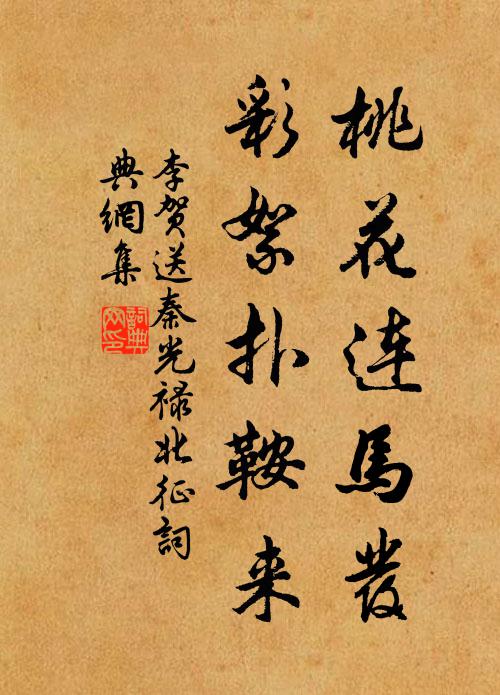 桃花连馬發
彩絮扑鞍来
李贺送秦光禄北征詞
典網集
詞典网印